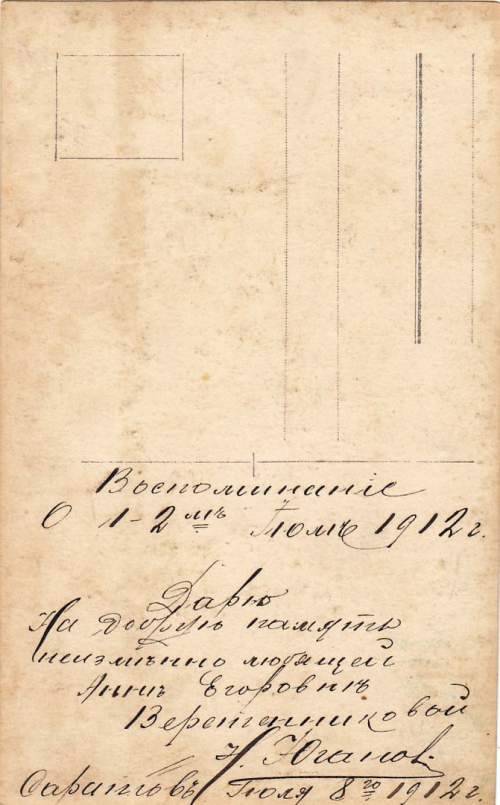 Воспоминаніе
О 1-2 мъ Іюлѣ 1912 г.
Дарю
На добрую память
неизмѣнно любящей
Аннѣ Егоровнѣ
Веретенниковой
Н. Юганов
Саратовъ Іюля 8 го 1912 г.